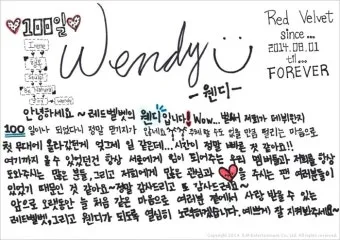 100일
Irene
Wendy
Wendy
-웬디-
Red Velvet
since...
2014.08.01
til...
FOREVER
안녕하세요~ 레드벨벳의 웬디입니다! Wow... 벌써 저희가 데뷔한지
100일이나 되었다니 정말 믿기지가 않네요 주체할 수도 없을 만큼 떨리는 마음으로
첫 무대에 올라갔던게 엊그제 일 같은데...시간이 정말 빠른 것 같아요!!
여기까지 올 수 있었던건 항상 서로에게 힘이 되어주는 우리 멤버들과 저희를 항상
도와주시는 많은 분들, 그리고 저희에게 많은 관심과 을 주시는 팬 여러분들이
있었기 때문인 것 같아요~정말 감사드리고 또 감사드려요~
앞으로 오랫동안 늘 처음 같은 마음으로 여러분 곁에서 사랑 받을 수 있는
레드벨벳, 그리고 웬디가 되도록 열심히 노력하겠습니다. 예쁘게 잘 지켜봐주세요~